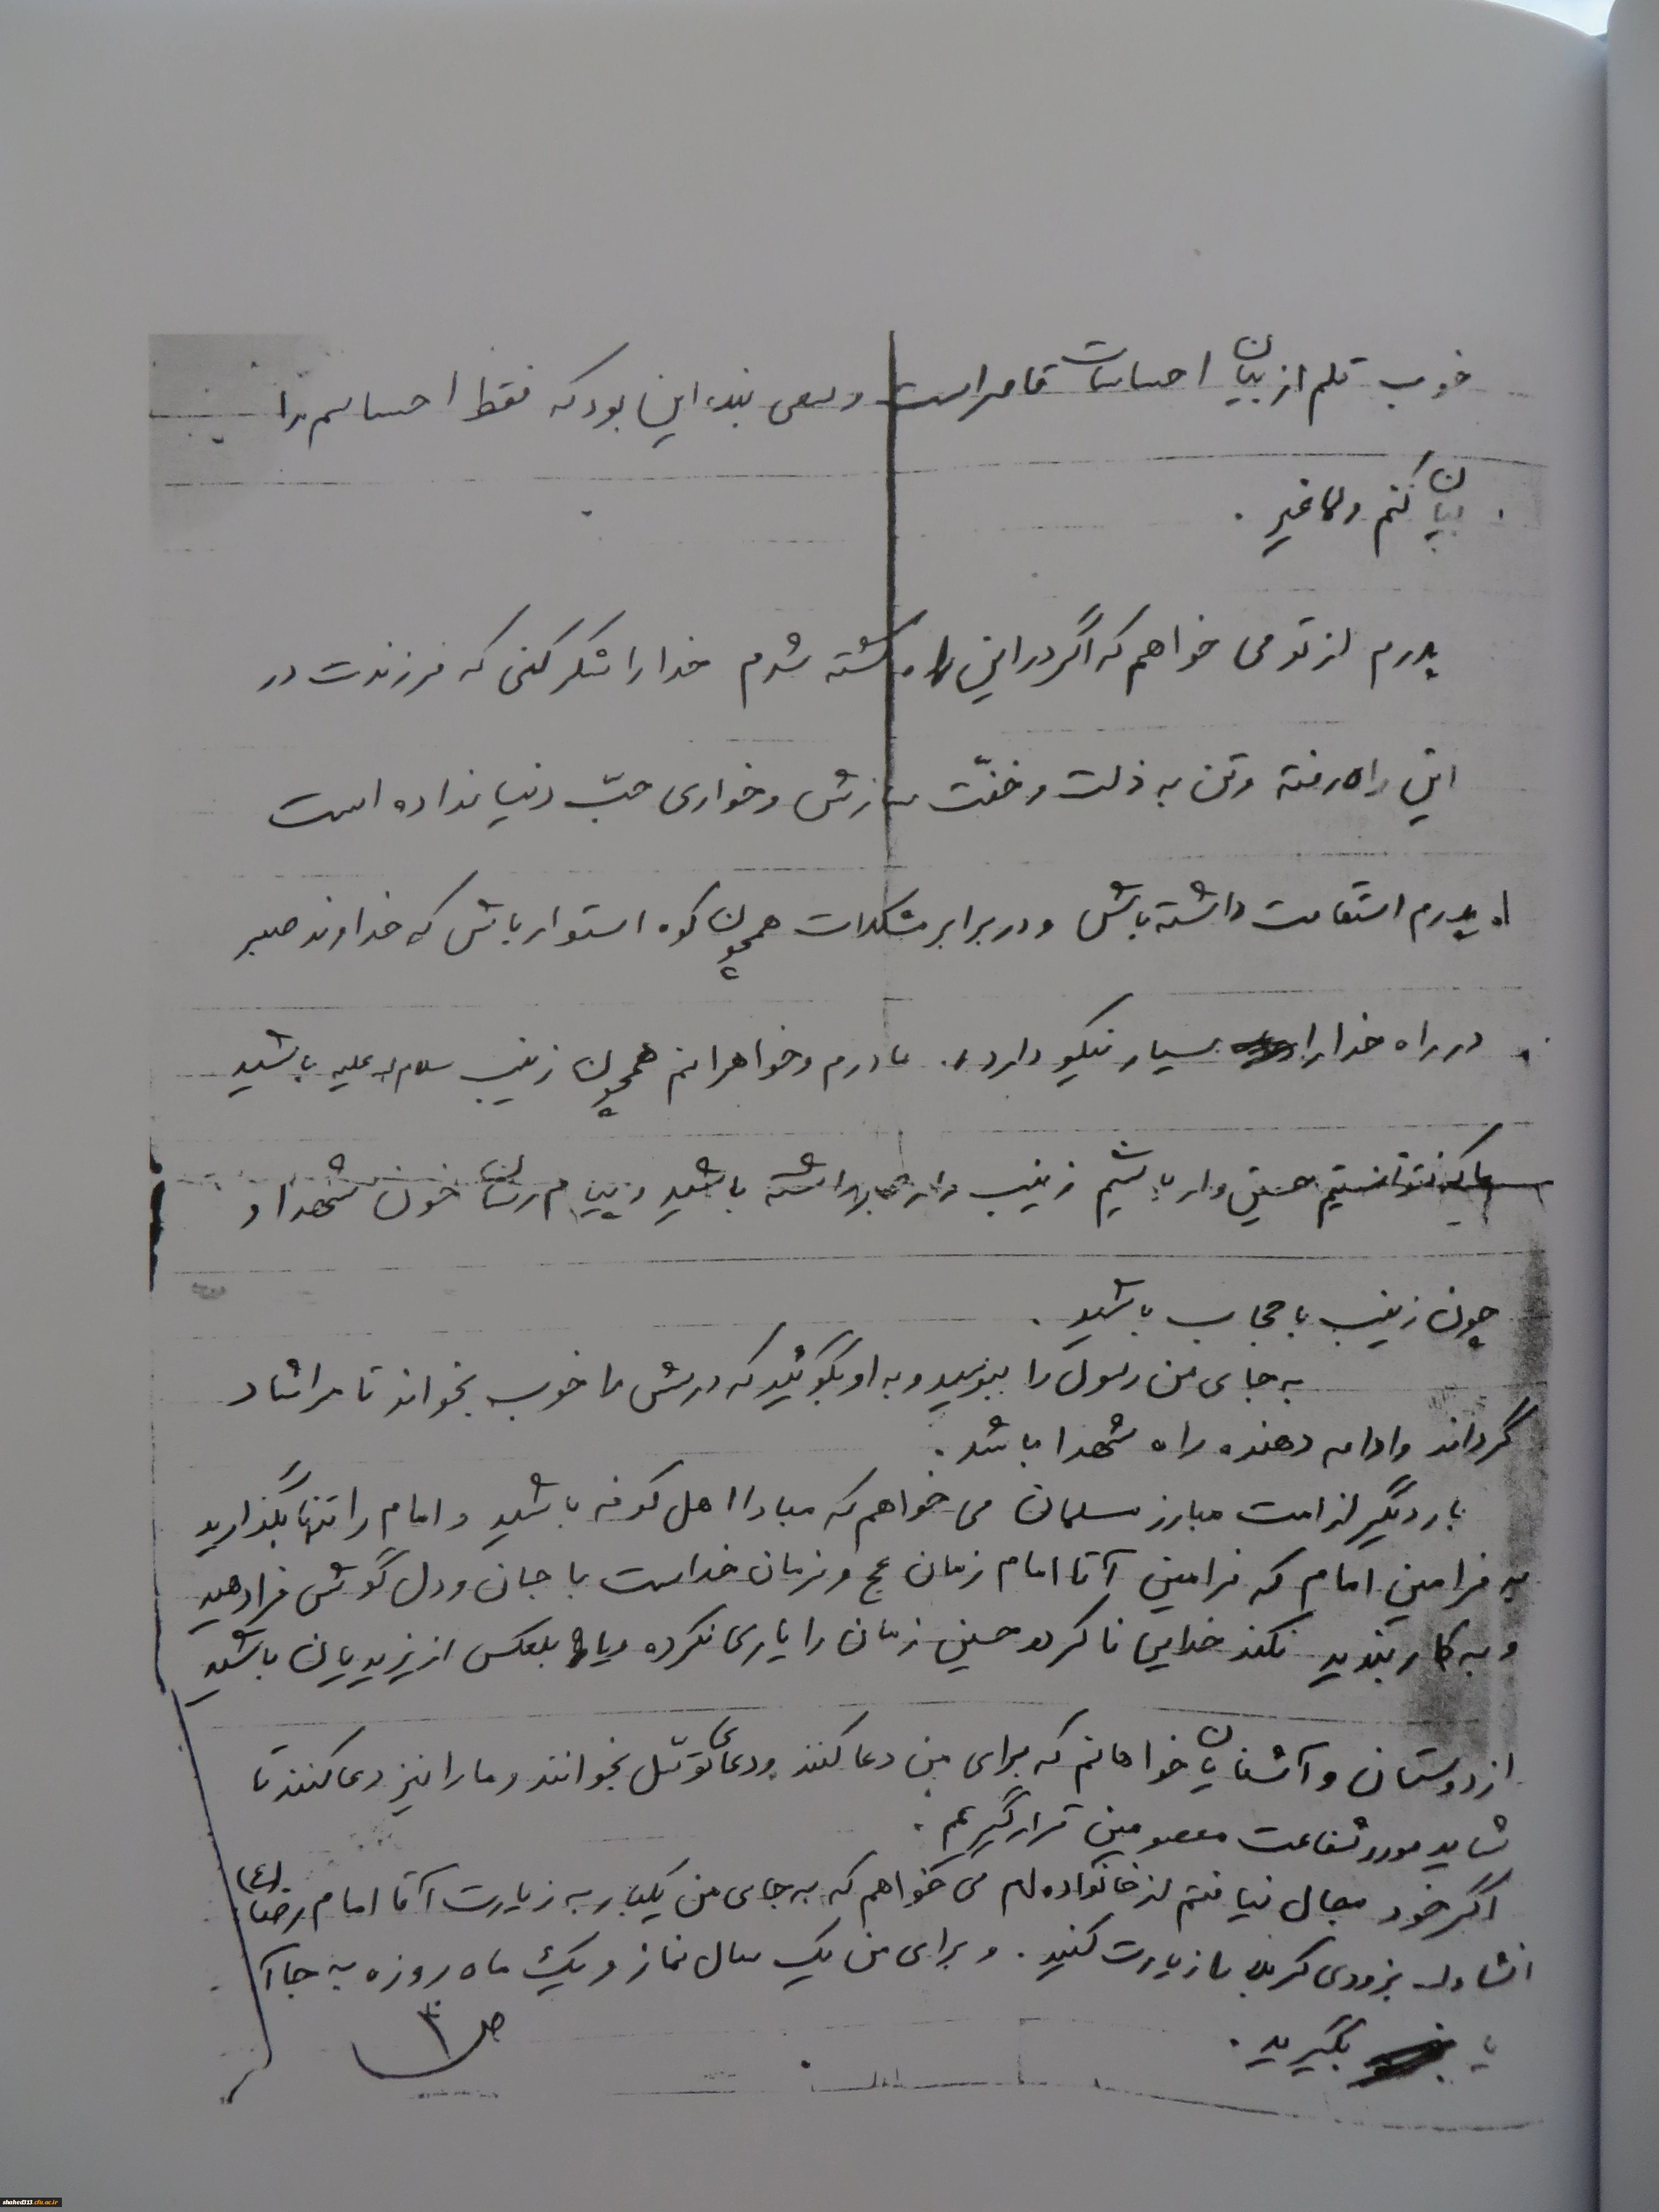 خوب قلم از بیان احساسات قاصر است و سعی بنده این بود که فقط احساسم را
بیان کنم ولاغیر .
پدرم از تو می خواهم که اگر در این راه کشته شدم خدا را شکر کنی که فرزندت در
این راه رفته و تن به ذلت و خفّت سازش و خواری حبّ دنیا نداده است
پدرم استقامت داشته باش و در برابر مشکلات همچون کوه استوار باش که خداوند صبر
در راه خدا را بسیار نیکو دارد . مادرم و خواهرانم همچون زینب سلام اله علیه باشید
ما که نتوانستیم حسین وار باشیم زینب وار باشید و پیام رسان خون شهدا و
چون زینب با حجاب باشید .
به جای من رسول را ببوسید و به او بگوئید که درسش را خوب بخواند تا مرا شاد
گرداند و ادامه دهنده راه شهدا باشد .
بار دیگر از امت مبارز مسلمان می خواهم که مبادا اهل کوفه باشید و امام را تنها بگذارید
به فرامین امام که فرامین آقا امام زمان عج و فرمان خداست با جان و دل گوش فرا دهید
و به کار بندید نکند خدایی ناکرده حسین زمان را یاری نکرده و یا بلعکس از یزیدیان باشید
از دوستان و آشنایان خواهانم که برای من دعا کنند و دعای توسّل بخوانند و ما را نیز دعا کنند تا
شاید مورد شفاعت معصومین قرار گیریم .
اگر خود مجال نیافتم از خانواده ام می خواهم که به جای من یکبار به زیارت آقا امام رضا (ع)
انشاءاله بزودی کربلا را زیارت کنید . و برای من یک سال نماز و یک ماه روزه به جا آ
یا بگیرید .
ص ۳
shahed313.cfu.ac.ir